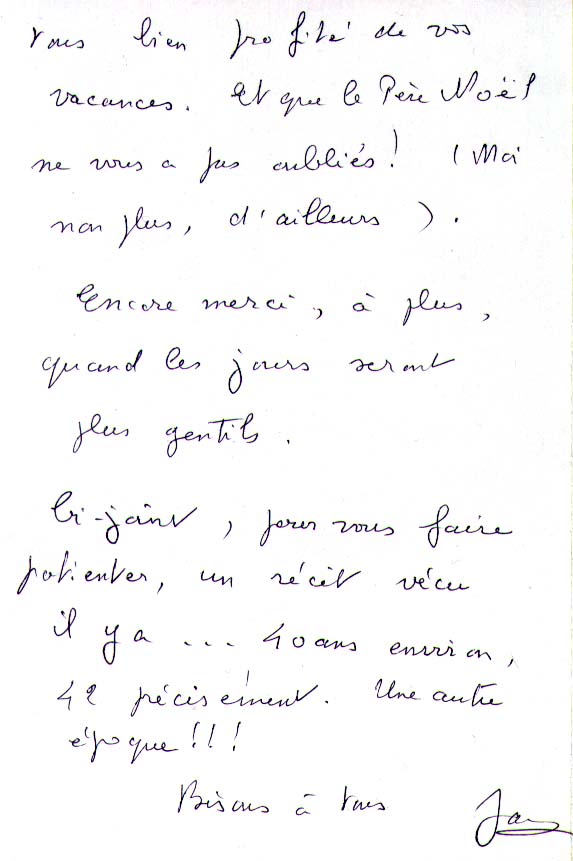 tous bien profité de vos
vacances. Et que le Père Noël
ne vous a pas oubliés ! (Moi
non plus, d'ailleurs ).
Encore merci, à plus,
quand les jours seront
plus gentils.
Ci-joint, pour vous faire
patienter, un récit vécu
il y a ... 40 ans environ,
42 précisément. Une autre
époque !!!
Bisous à tous